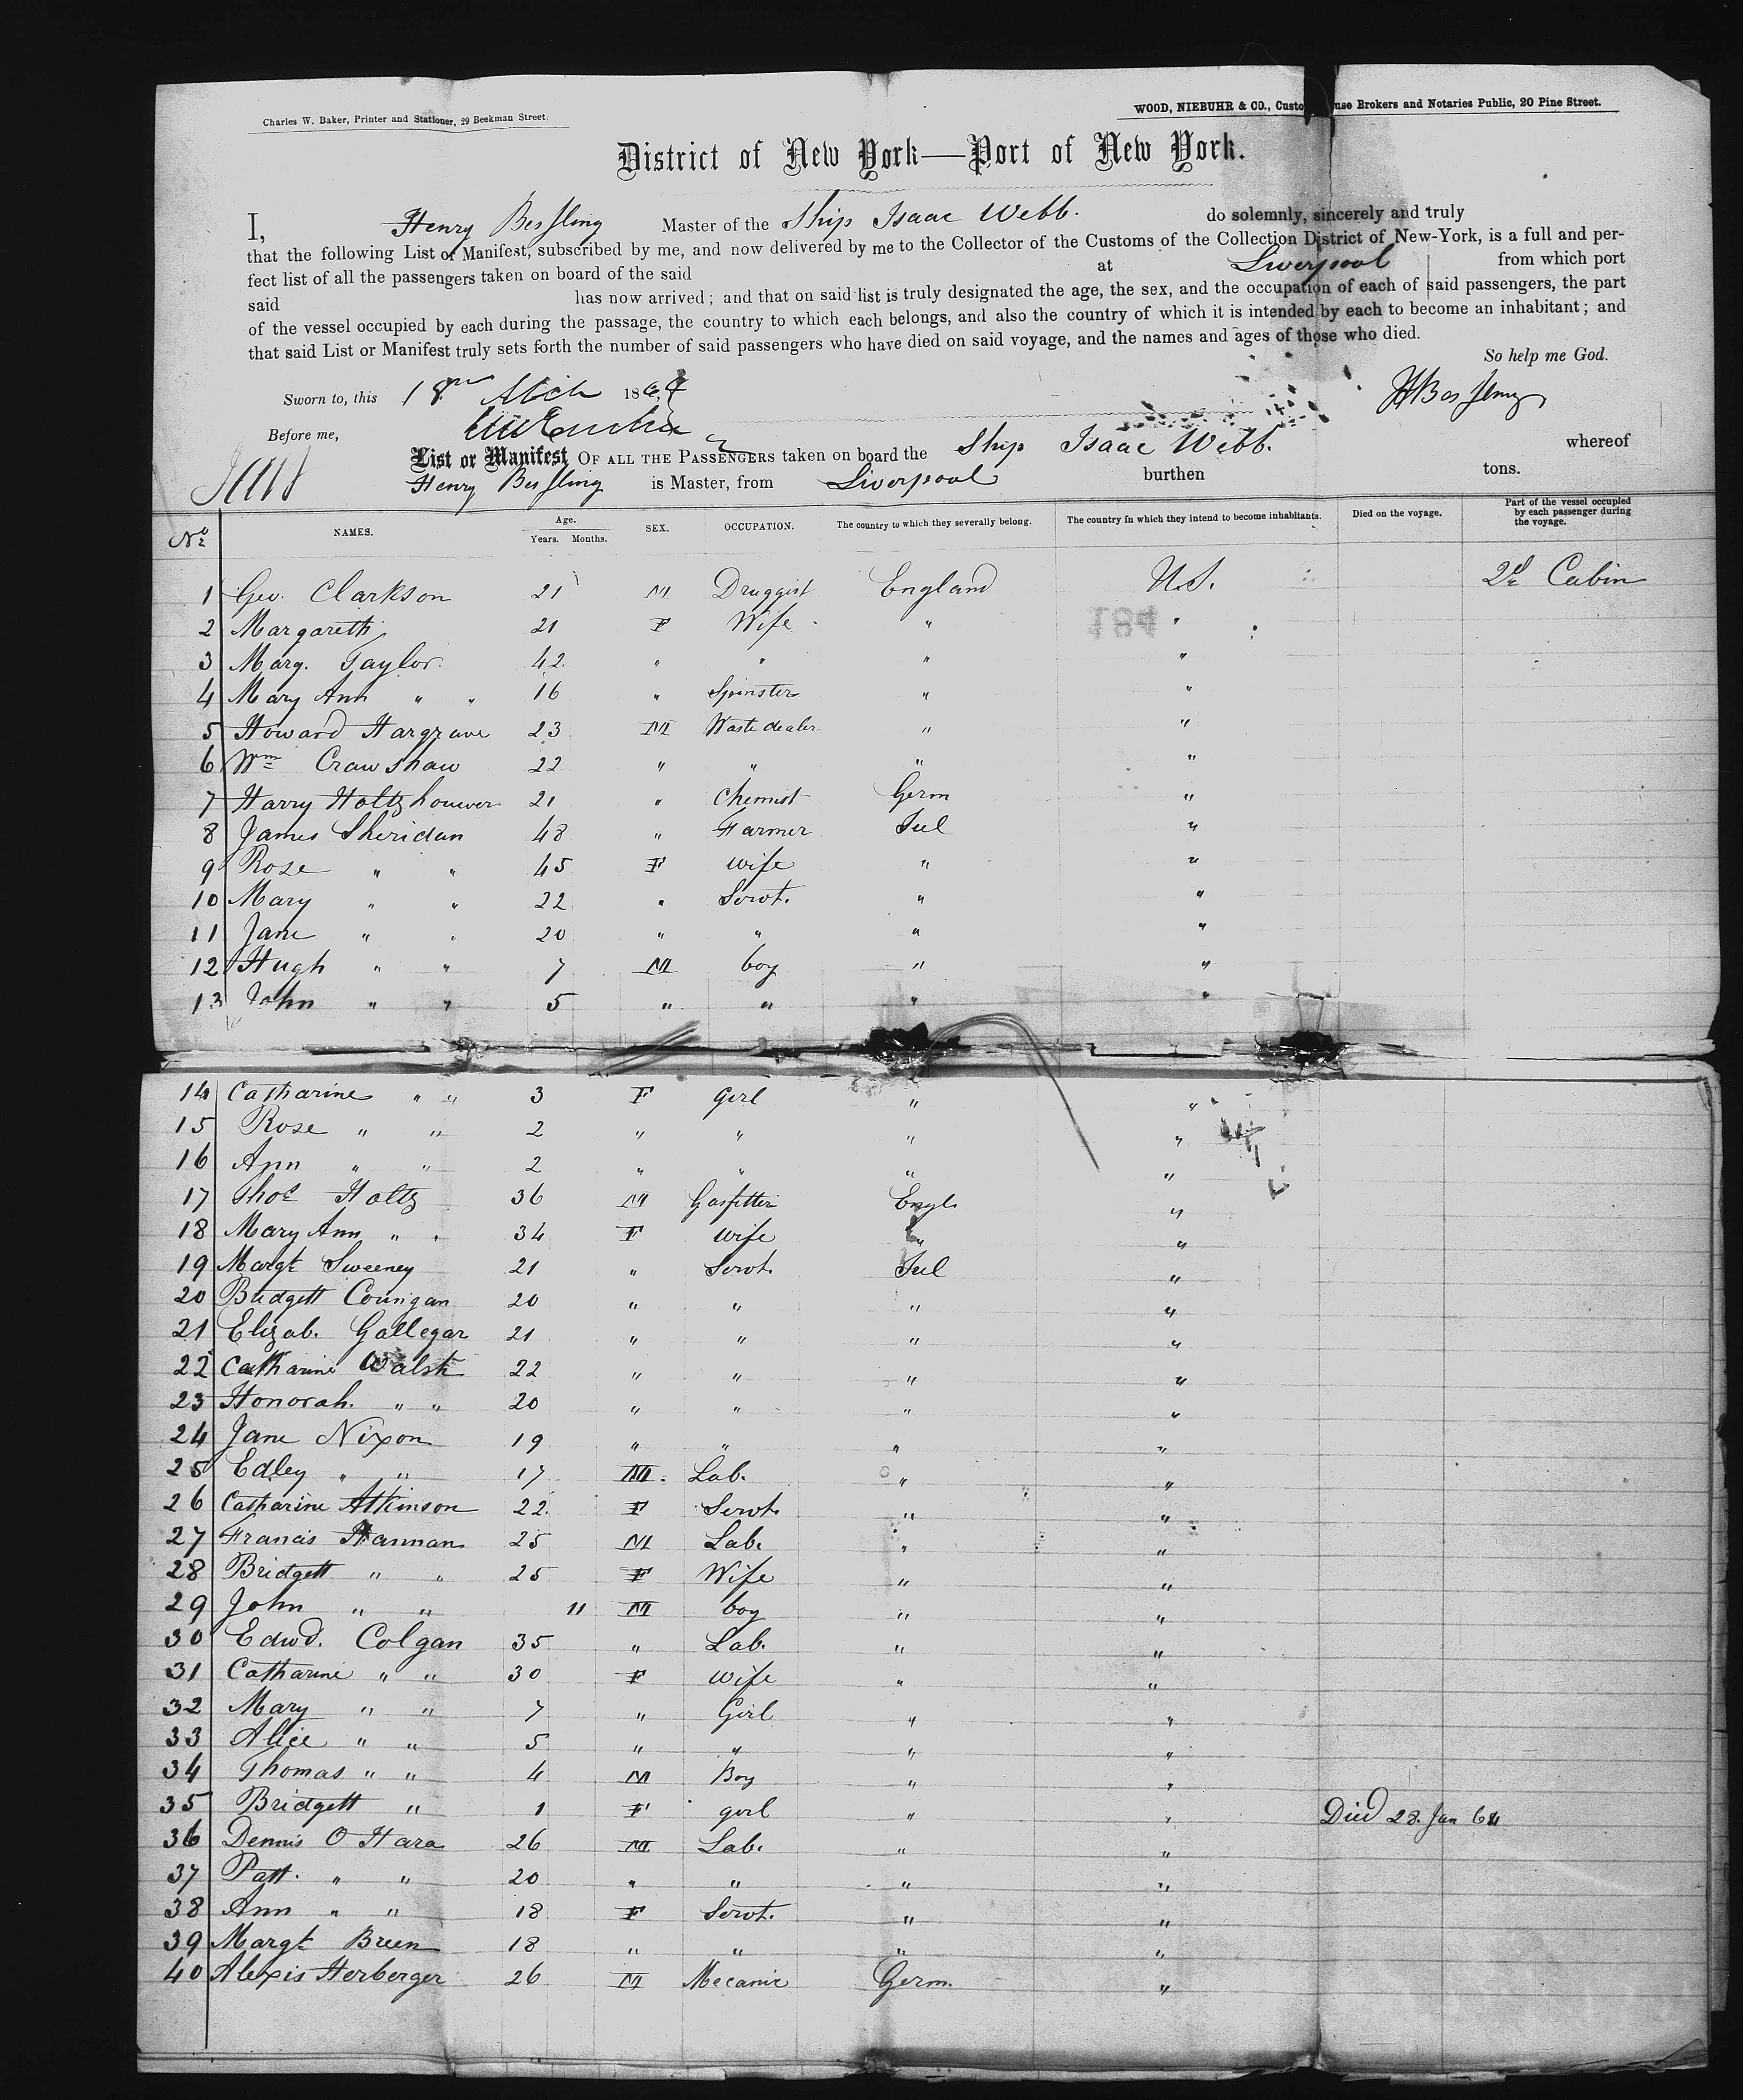 Charles W. Baker, Printer and Stationer, 29 Beekman Street.
WOOD, NIEBUHR & CO., Custo use Brokers and Notaries Public, 20 Pine Street.
District of New York—Port of New York.
I, Henry Bessling Master of the Ship Isaac Webb. do solemnly, sincerely and truly
that the following List or Manifest, subscribed by me, and now delivered by me to the Collector of the Customs of the Collection District of New-York, is a full and per-
fect list of all the passengers taken on board of the said at Liverpool from which port
said has now arrived; and that on said list is truly designated the age, the sex, and the occupation of each of said passengers, the part
of the vessel occupied by each during the passage, the country to which each belongs, and also the country of which it is intended by each to become an inhabitant; and
that said List or Manifest truly sets forth the number of said passengers who have died on said voyage, and the names and ages of those who died.
So help me God.
Sworn to, this 18th Mch 1864
Before me,
List or Manifest OF ALL THE PASSENGERS taken on board the Ship Isaac Webb. whereof
Henry Bessling is Master, from Liverpool burthen tons.
No NAMES. Age. Years. Months. SEX. OCCUPATION. The country to which they severally belong. The country in which they intend to become inhabitants. Died on the voyage. Part of the vessel occupied by each passenger during the voyage.
1 Geo. Clarkson 21 M Druggist England U.S. 2d Cabin
184
2 Margareth 21 F Wife " "
3 Marg. Taylor 42 " " " "
4 Mary Ann " " 16 " Spinster " "
5 Howard Hargrave 23 M Waste dealer " "
6 Wm Crawshaw 22 " " " "
7 Harry Holtzhouwer 21 " Chemist Germ "
8 James Sheridan 48 " Farmer Irel "
9 Rose " " 45 F Wife " "
10 Mary " " 22 " Servt. " "
11 Jane " " 20 " " " "
12 Hugh " " 7 M boy " "
13 John " " 5 " " " "
14 Catharine " " 3 F Girl " "
15 Rose " " 2 " " " "
16 Ann " " 2 " " " "
17 Thos Holtz 36 M Gasfitter Engl. "
18 Mary Ann " " 34 F Wife " "
19 Margt Sweeney 21 " Servt. Irel "
20 Bridgett Counigan 20 " " " "
21 Elizab. Gallegar 21 " " " "
22 Catharine Walsh 22 " " " "
23 Honorah. " " 20 " " " "
24 Jane Nixon 19 " " " "
25 Edley " " 17 M. Lab. " "
26 Catharine Atkinson 22 F Servt. " "
27 Francis Hannan 25 M Lab. " "
28 Bridgett " " 25 F Wife " "
29 John " " 11 M boy " "
30 Edwd. Colgan 35 " Lab. " "
31 Catharine " " 30 F Wife " "
32 Mary " " 7 " Girl " "
33 Alice " " 5 " " " "
34 Thomas " " 4 M Boy " "
35 Bridgett " 1 F girl " " Died 28. Jan 64
36 Dennis O Hara 26 M Lab. " "
37 Patt. " " 20 " " " "
38 Ann " " 18 F Servt. " "
39 Margt Breen 18 " " " "
40 Alexis Herberger 26 M Mecanic Germ. "